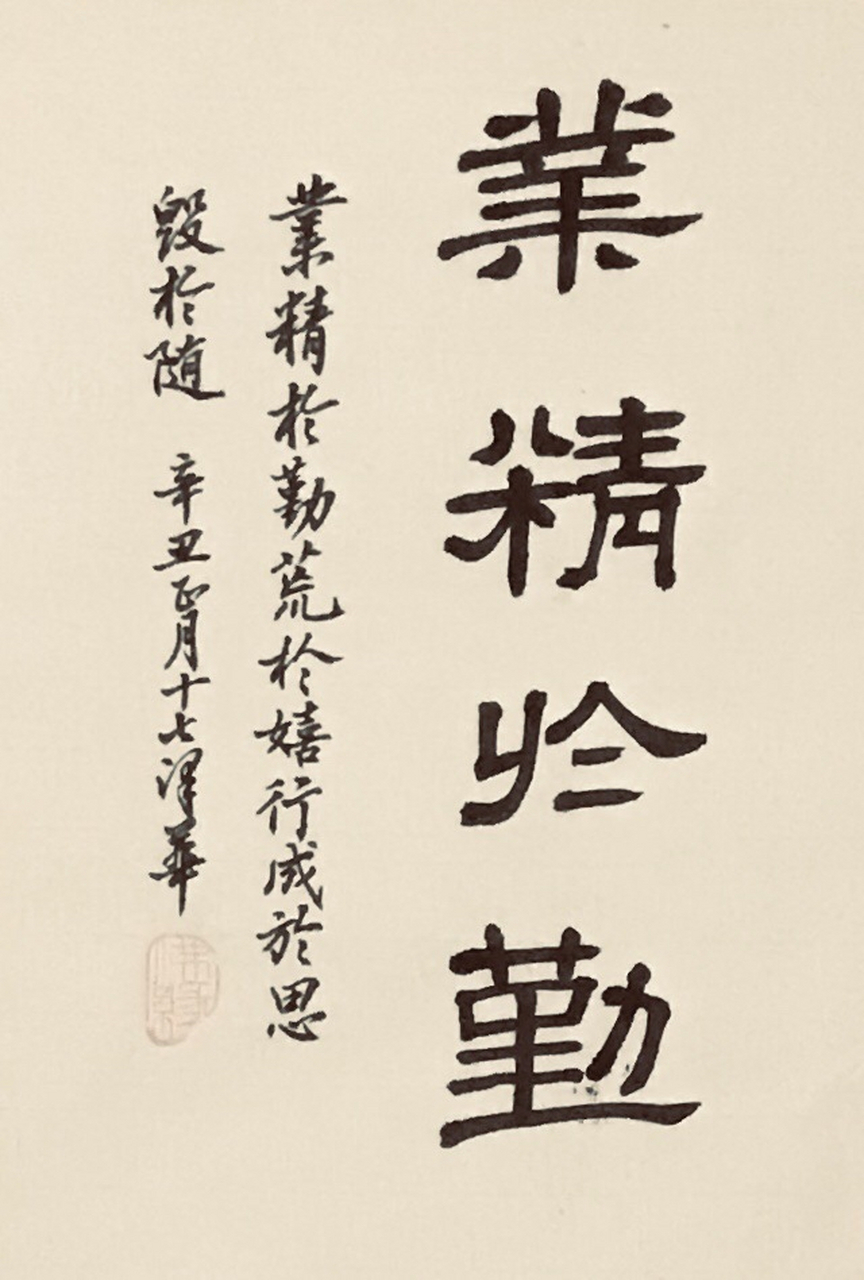 業精於勤
業精於勤荒於嬉行成於思
毀於随 辛丑正月十七澤華